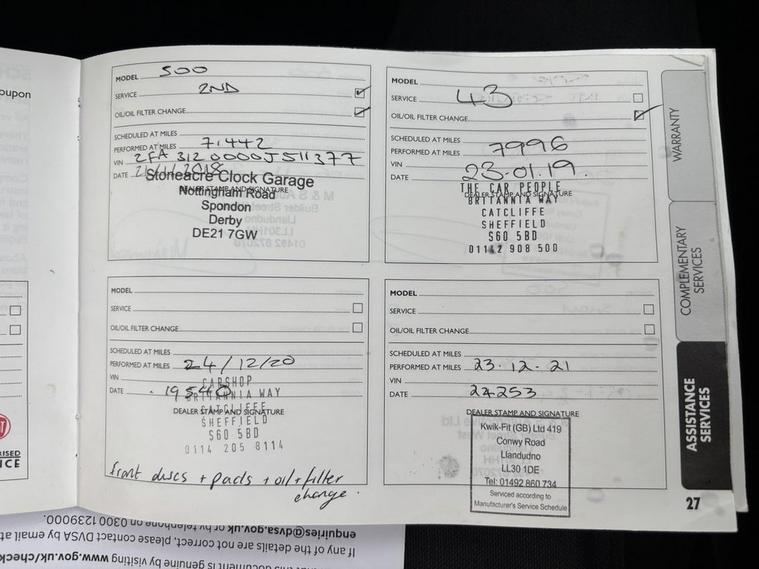 oupon
MODEL 500
SERVICE 2ND
OIL/OIL FILTER CHANGE
SCHEDULED AT MILES
PERFORMED AT MILES 7,442
VIN ZFA 312 0000J511377
DATE 21/11/2018
Stoneacre Clock Garage
DEALER STAMP AND SIGNATURE
Nottingham Road
Spondon
Derby
DE21 7GW
MODEL
SERVICE 43
OIL/OIL FILTER CHANGE
SCHEDULED AT MILES
PERFORMED AT MILES 7996
VIN
DATE 23.01.19.
THE CAR PEOPLE
DEALER STAMP AND SIGNATURE
BRITANNIA WAY
CATCLIFFE
SHEFFIELD
S60 5BD
01142 908 500
MODEL
SERVICE
OIL/OIL FILTER CHANGE
SCHEDULED AT MILES
PERFORMED AT MILES 24/12/20
VIN
DATE 19540
CARSHOP
BRITANNIA WAY
DEALER STAMP AND SIGNATURE
CATCLIFFE
SHEFFIELD
S60 5BD
0114 205 8114
front discs + pads + oil + filter
change.
MODEL
SERVICE
OIL/OIL FILTER CHANGE
SCHEDULED AT MILES
PERFORMED AT MILES 23.12.21
VIN
DATE 24253
DEALER STAMP AND SIGNATURE
Kwik-Fit (GB) Ltd 419
Conwy Road
Llandudno
LL30 1DE
Tel: 01492 860 734
Serviced according to
Manufacturer's Service Schedule
WARRANTY
COMPLEMENTARY
SERVICES
ASSISTANCE
SERVICES
27
RISED
ICE
document is genuine by visiting www.gov.uk/check
If any of the details are not correct, please contact DVSA by email at
enquiries@dvsa.gov.uk or by telephone on 0300 1239000.